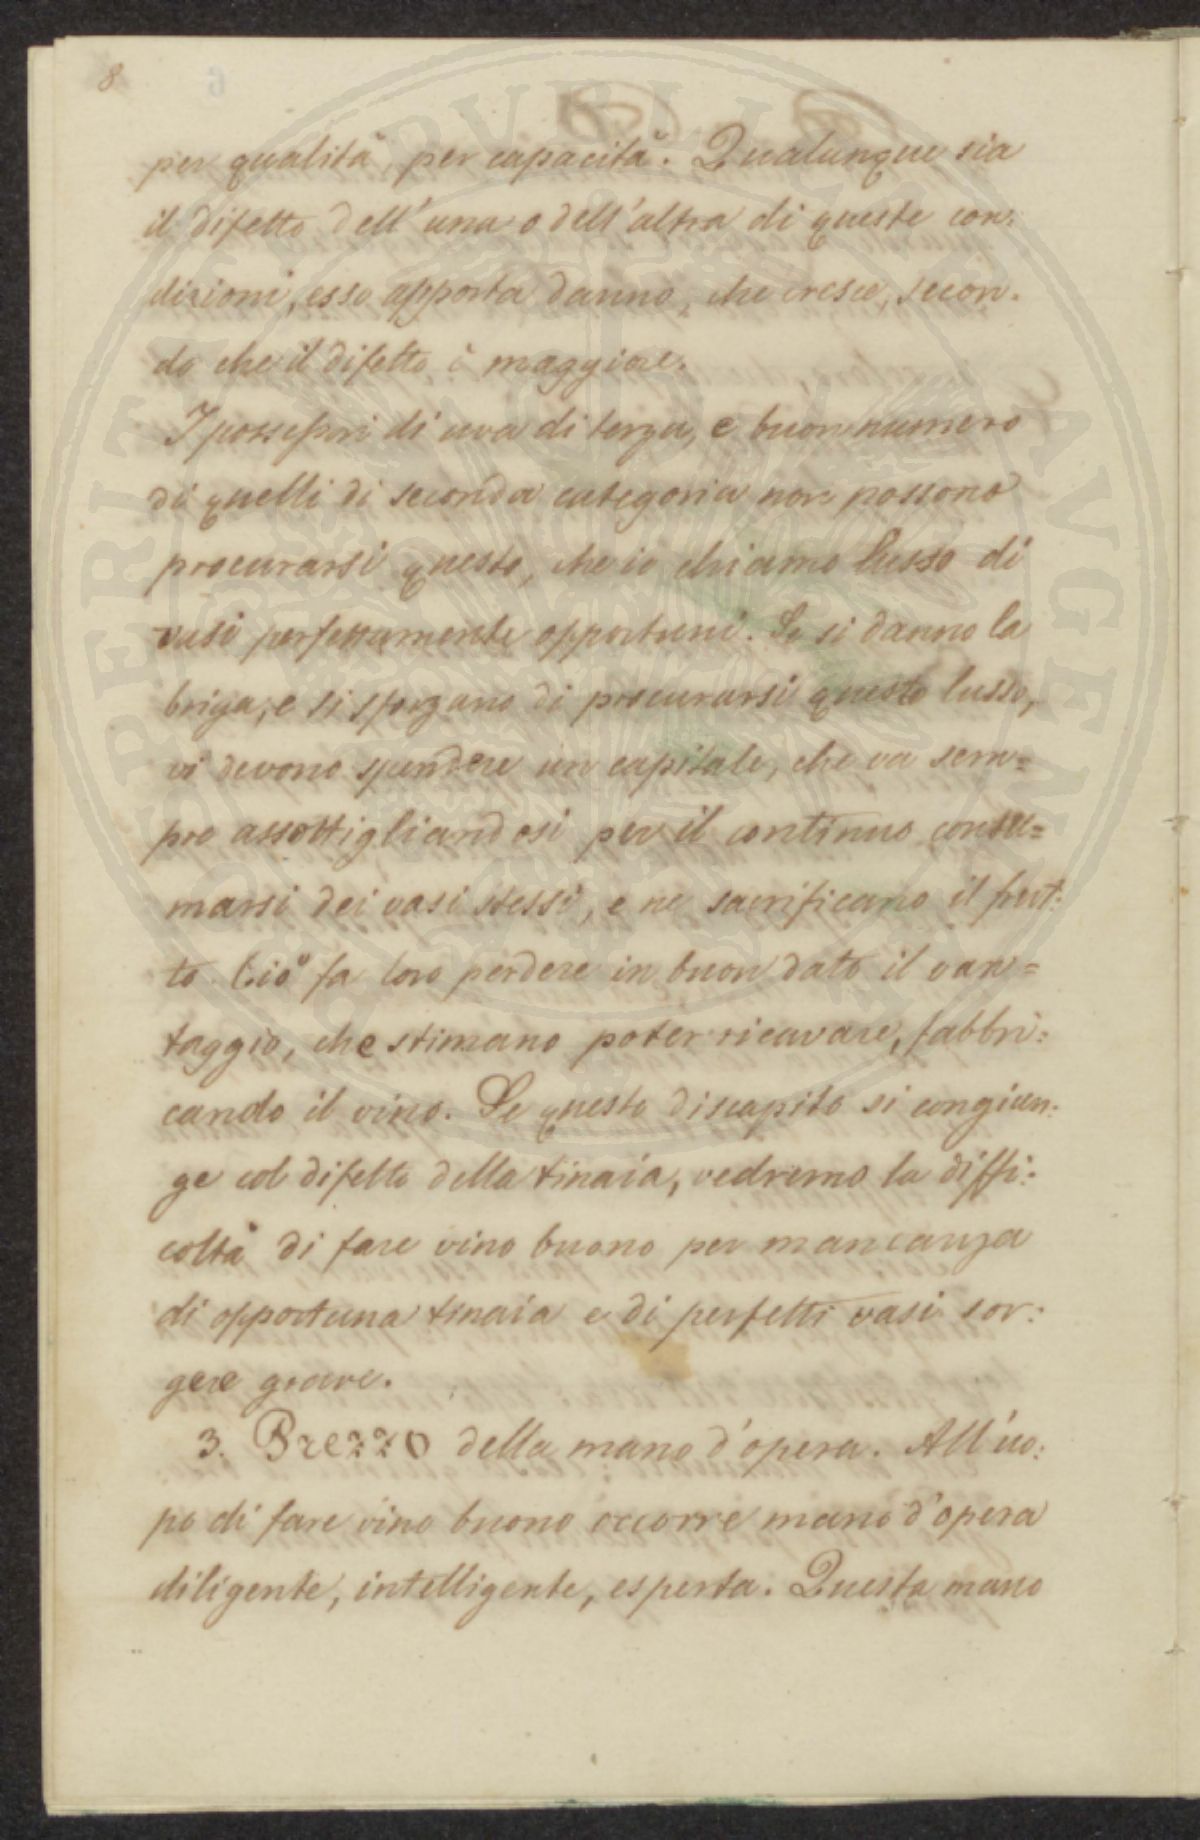 8
per qualità, per capacità. Qualunque sia
il difetto dell'una o dell'altra di queste con:
dizioni, esso apporta danno, che cresce, secon.
do che il difetto è maggiore.
I possessori di uva di terza, e buon numero
di quelli di seconda categoria non possono
procurarsi questo, che io chiamo lusso di
vasi perfettamente opportuni. Se si danno la
briga, e si sforzano di procurarsi questo lusso,
vi devono spendere un capitale, che va sem=
pre assottigliandosi per il continuo consu=
marsi dei vasi stessi, e ne sacrificano il frut:
to. Ciò fa loro perdere in buon dato il van=
taggio, che stimano poter ricavare, fabbri:
cando il vino. Se questo discapito si congiun:
ge col difetto della tinaia, vedremo la diffi:
coltà di fare vino buono per mancanza
di opportuna tinaia e di perfetti vasi sor:
gere grave.
3. Prezzo della mano d'opera. All'uo:
po di fare vino buono occorre mano d'opera
diligente, intelligente, esperta. Questa mano